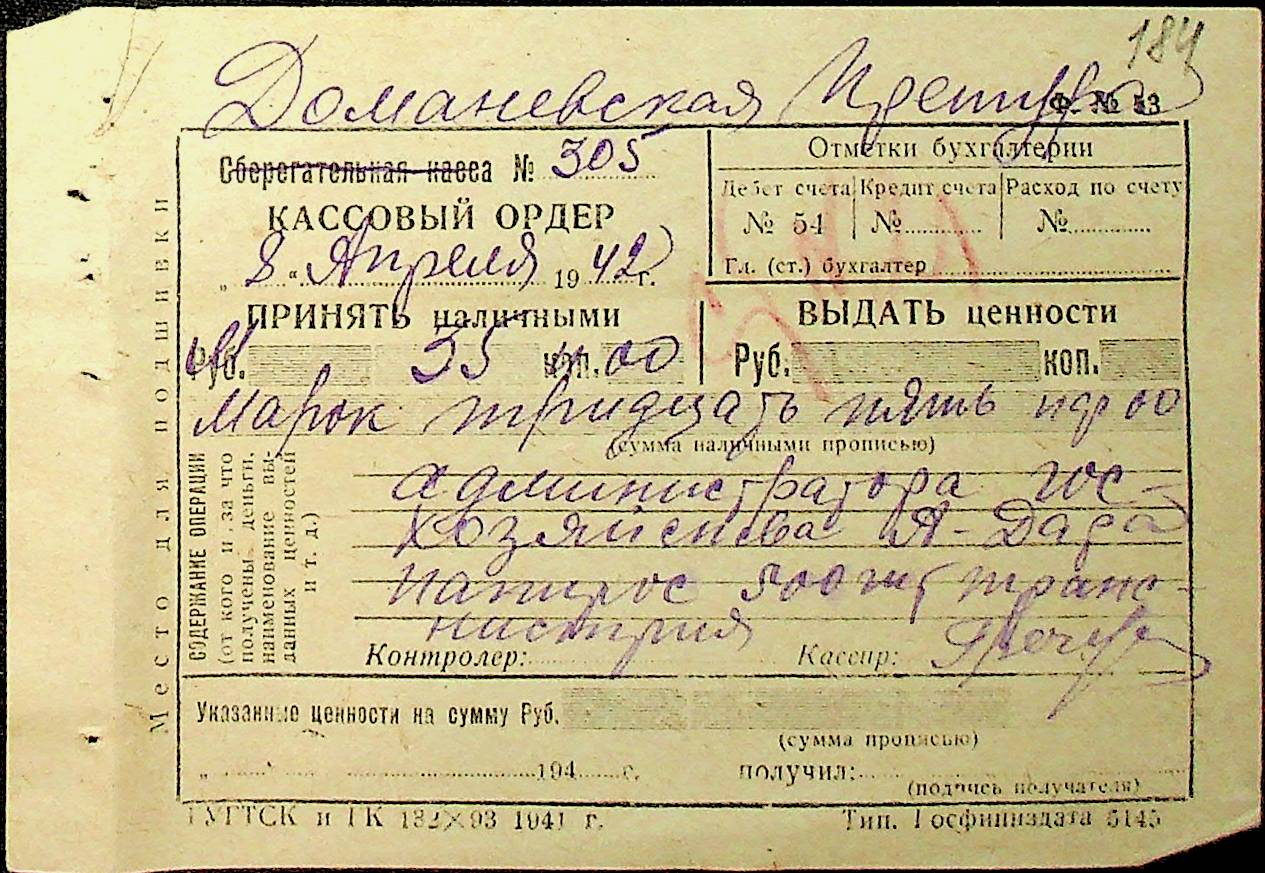 184
Доманевская Претура
Ф. № 53
Сберегательная касса № 305
КАССОВЫЙ ОРДЕР
„ 8 “ Апреля 1942 г.
Отметки бухгалтерии
Дебет счета Кредит счета Расход по счету
№ 54 № №
Гл. (ст.) бухгалтер
ПРИНЯТЬ наличными
Руб. 35 коп. 00
ВЫДАТЬ ценности
Руб. коп.
Марок тридцать пять 00
(сумма наличными прописью)
СОДЕРЖАНИЕ ОПЕРАЦИИ
(от кого и за что
получены деньги,
наименование вы-
данных ценностей
и т. д.)
администратора гос-
хозяйства
папирос 500 шт транс-
нистрия
Контролер: Кассир:
Указанные ценности на сумму Руб.
(сумма прописью)
„ 194 г. получил:
(подпись получателя)
Место для подшивки
ГУГТСК и ГК 132×93 1941 г. Тип. Госфиниздата 5145